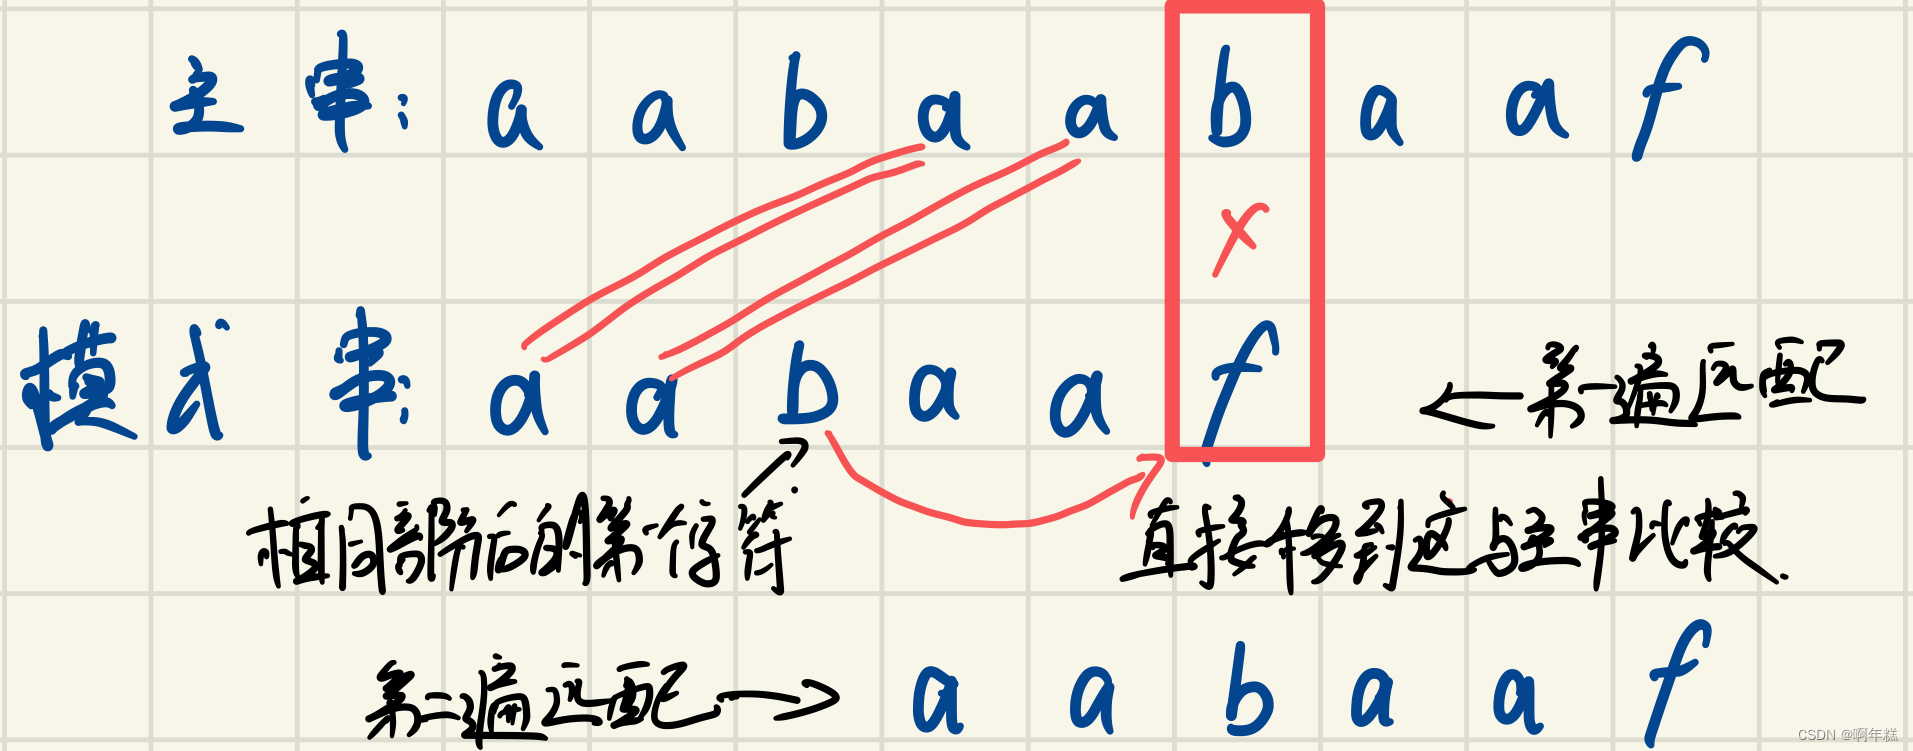 主串: a a b a a b a a f
×
模式串: a a b a a f ←第一遍匹配
相同部分后的第一个字符 直接移到这与主串比较.
第二遍匹配→ a a b a a f
CSDN @啊年糕